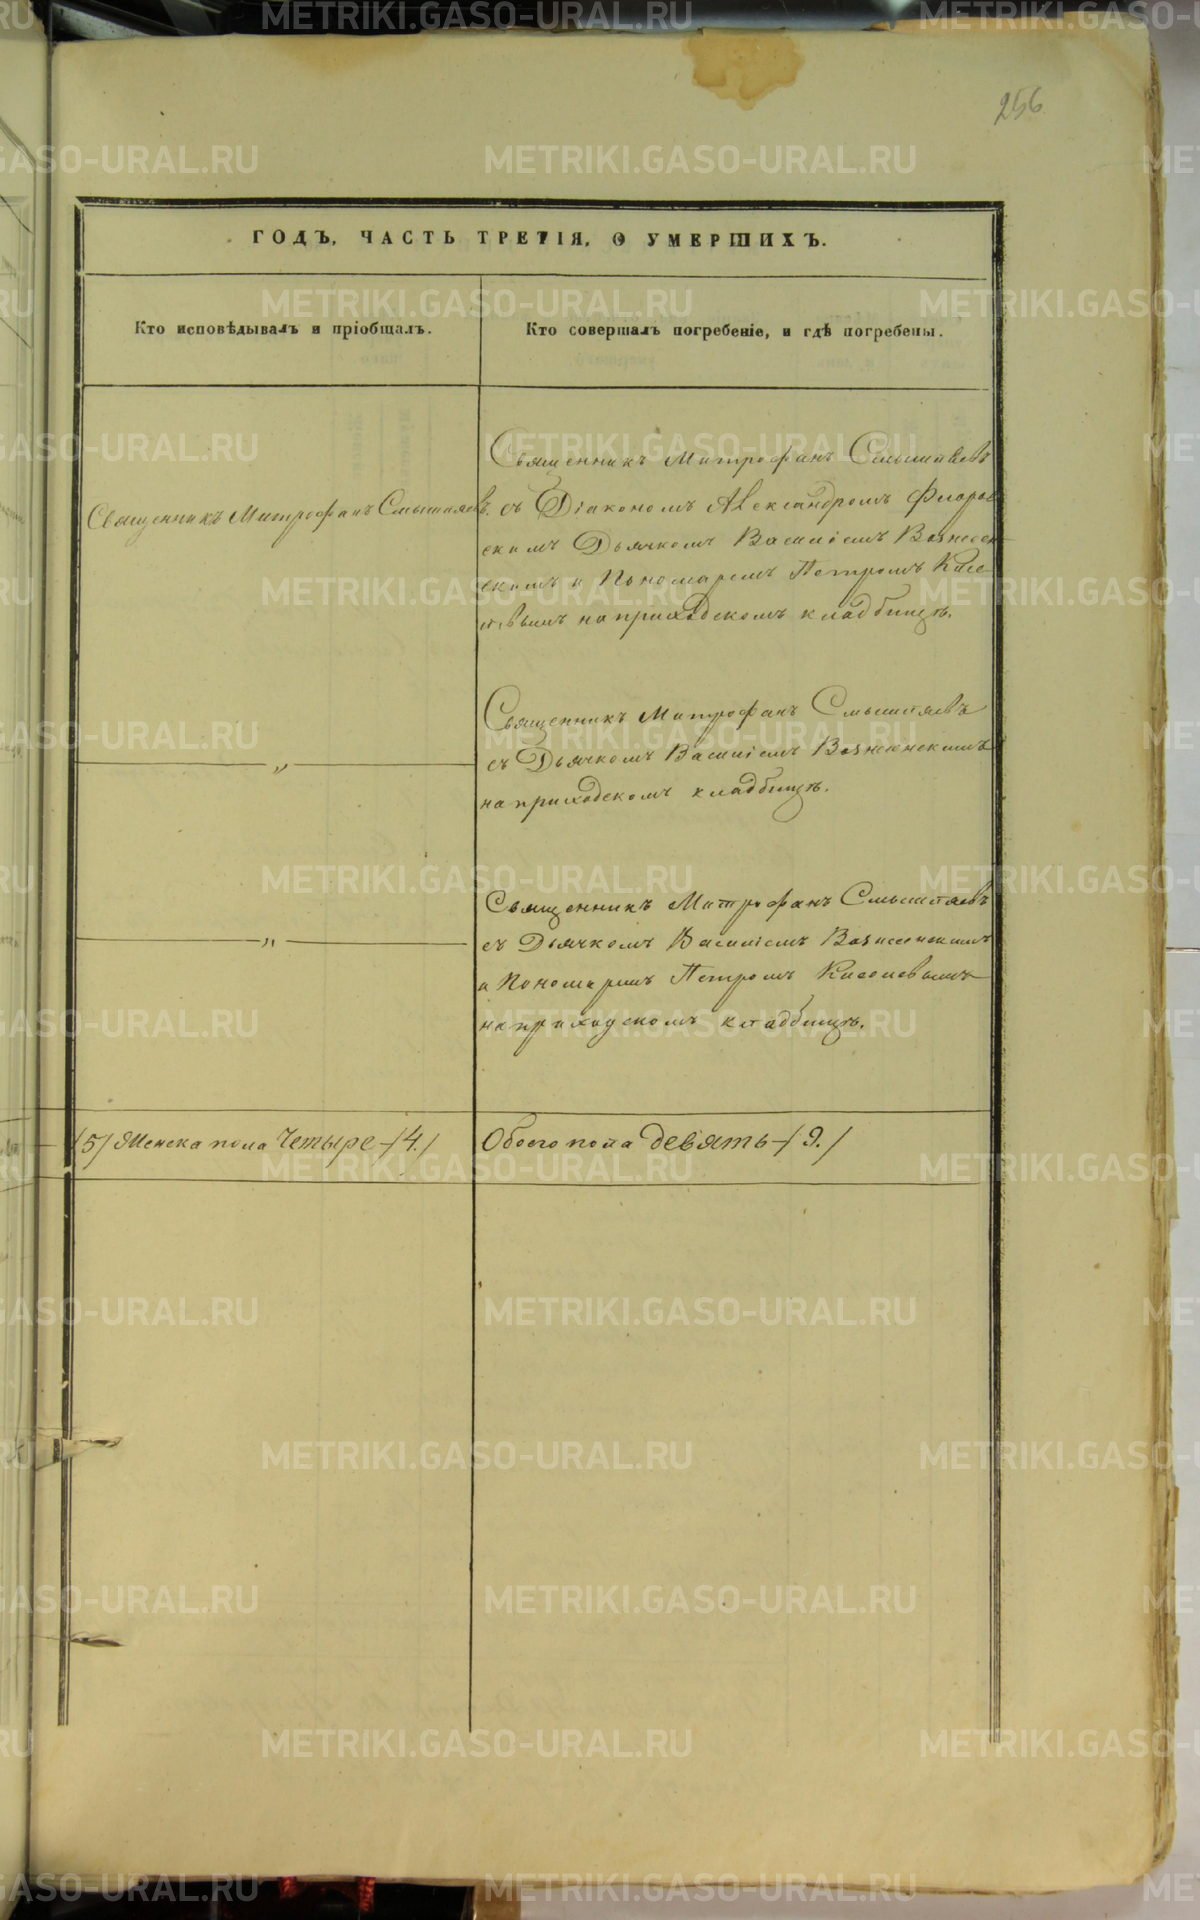 256
ГОДЪ, ЧАСТЬ ТРЕТІЯ, О УМЕРШИХЪ.
Кто исповѣдывалъ и пріобщалъ.
Кто совершалъ погребеніе, и гдѣ погребены.
Священникъ Митрофанъ Смышляевъ.
Священникъ Митрофанъ Смышляевъ
съ Діакономъ Александромъ Флоров
скимъ Дьячкомъ Василіемъ Вознесен
скимъ и Пономаремъ Петромъ Кисе
левымъ на приходскомъ кладбищѣ.
— „ —
Священникъ Митрофанъ Смышляевъ
съ Дьячкомъ Василіемъ Вознесенскимъ
на приходскомъ кладбищѣ.
— „ —
Священникъ Митрофанъ Смышляевъ
съ Дьячкомъ Василіемъ Вознесенскимъ
и Пономаремъ Петромъ Киселевымъ
на приходскомъ кладбищѣ.
/5/ Женска пола Четыре /4./
Обоего пола девять /9./
METRIKI.GASO-URAL.RU